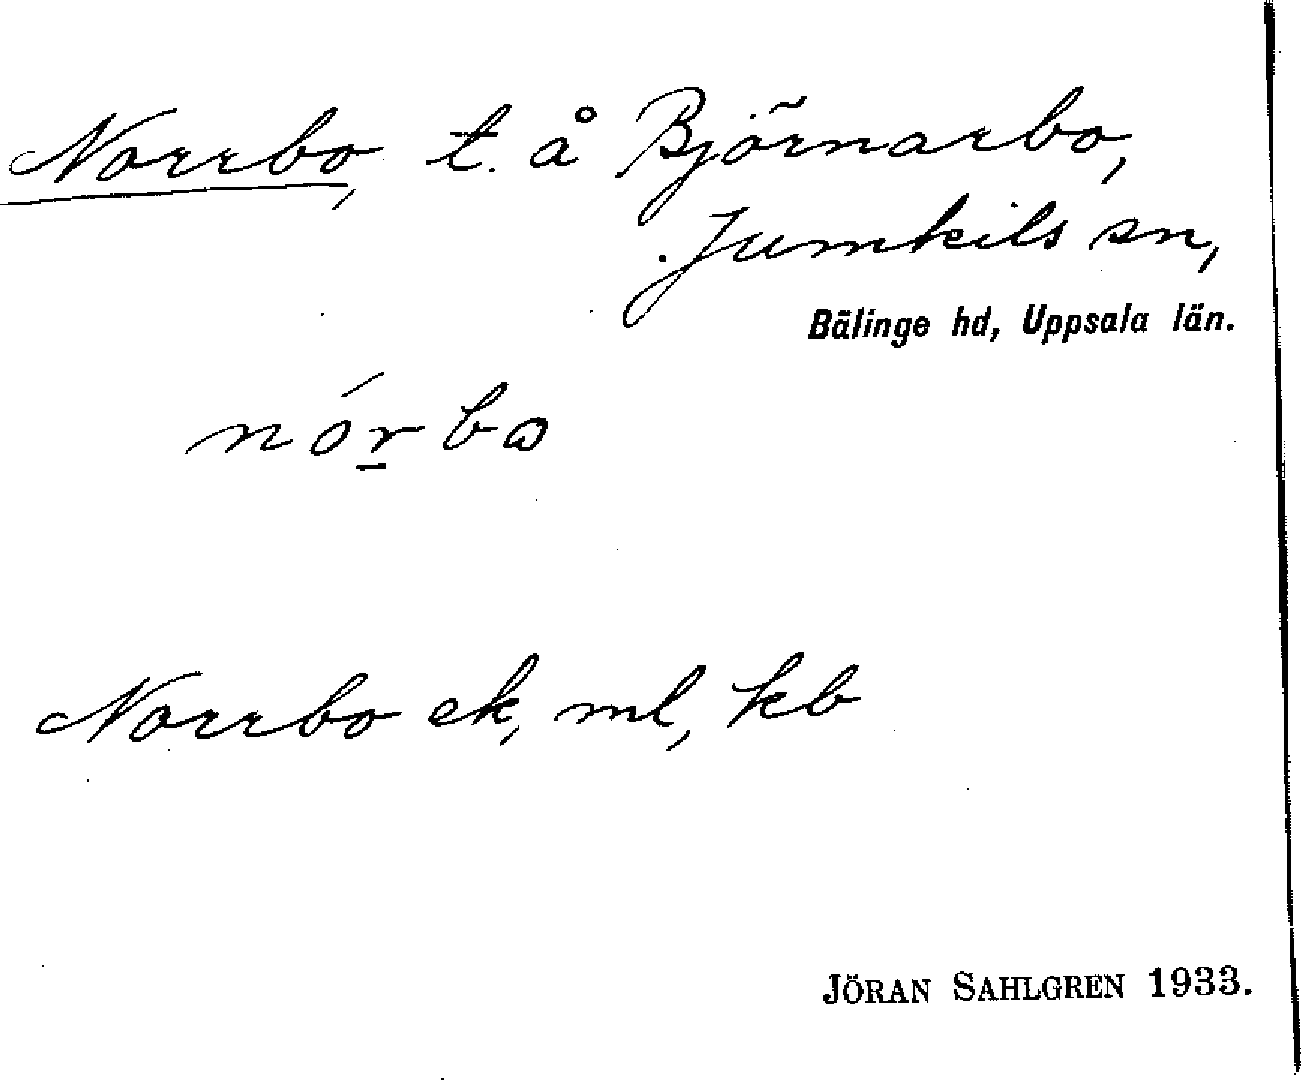 Norrbo, t. å Björnarbo,
Jumkils sn,
Bälinge hd, Uppsala län.
nórbω
Norrbo ek, ml, kb
JÖRAN SAHLGREN 1933.